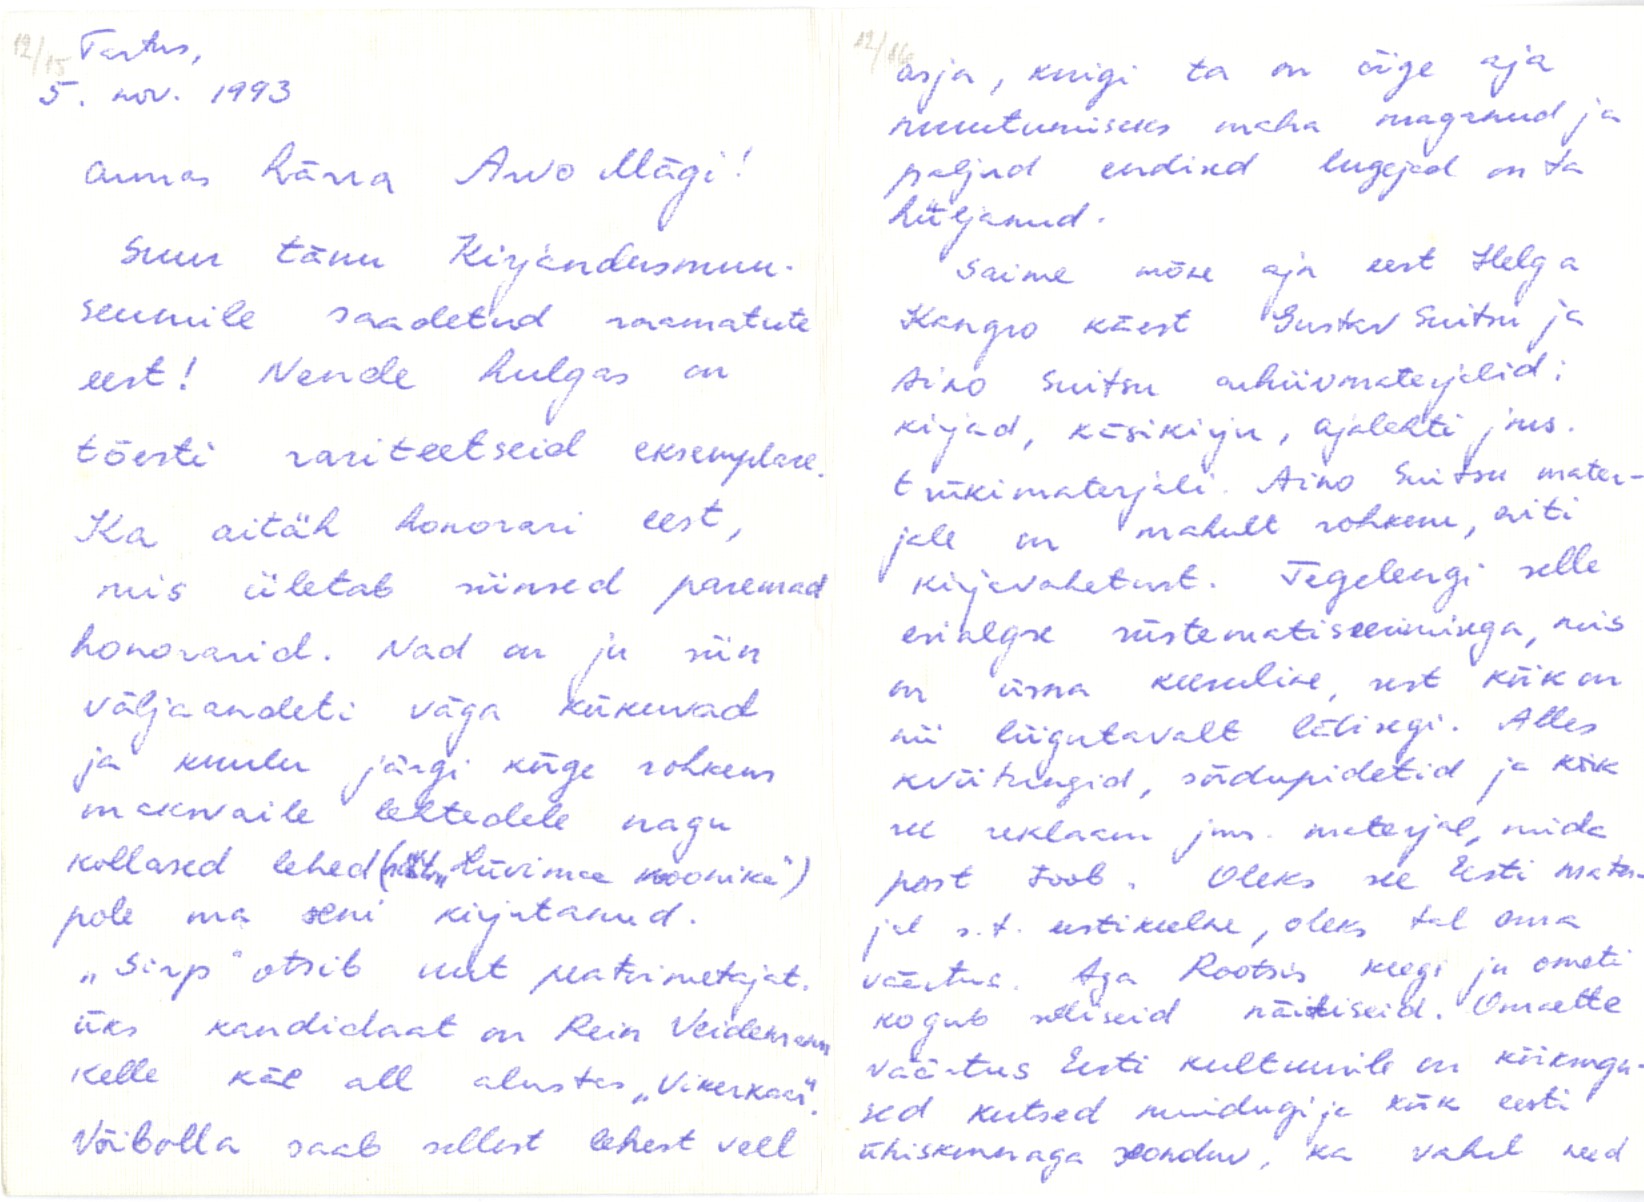 12/15
Tartus,
5. nov. 1993
Armas härra Arvo Mägi!
Suur tänu Kirjandusmuu-
seumile saadetud raamatute
eest! Nende hulgas on
tõesti rariteetseid eksemplare.
Ka aitäh honorari eest,
mis ületab siinsed paremad
honorarid. Nad on ju siin
väljaandeti väga kõikuvad
ja kuulu järgi kõige rohkem
maksvaile lehtedele nagu
kollased lehed ( „Liivimaa kroonika")
pole ma seni kirjutanud.
„Sirp" otsib uut peatoimetajat.
Üks kandidaat on Rein Veidemann
kelle käe all alustas „Vikerkaar".
Võibolla saab sellest lehest veel
12/16
asja, kuigi ta on õige aja
muutumiseks maha maganud ja
paljud endised lugejad on ta
hüljanud.
Saime mõne aja eest Helga
Kangro käest Gustav Suitsu ja
Aino Suitsu arhiivmaterjalid:
kirjad, käsikirju, ajalehti jms.
trükimaterjali. Aino Suitsu mater-
jale on mahult rohkem, eriti
kirjavahetust. Tegelengi selle
esialgse süstematiseerimisega, mis
on üsna keeruline, sest kõik on
nii liigutavalt läbisegi. Alles
kviitungid, sõidupiletid ja kõik
see reklaam jms. materjal, mida
post toob. Oleks see Eesti mater-
jal s.t. eestikeelne, oleks tal oma
väärtus. Aga Rootsis keegi ju ometi
kogub selliseid näitiseid. Omaette
väärtus Eesti kultuurile on kõiksugu-
sed kutsed muidugi ja kõik eesti
ühiskonnaga seonduv, ka vahel need